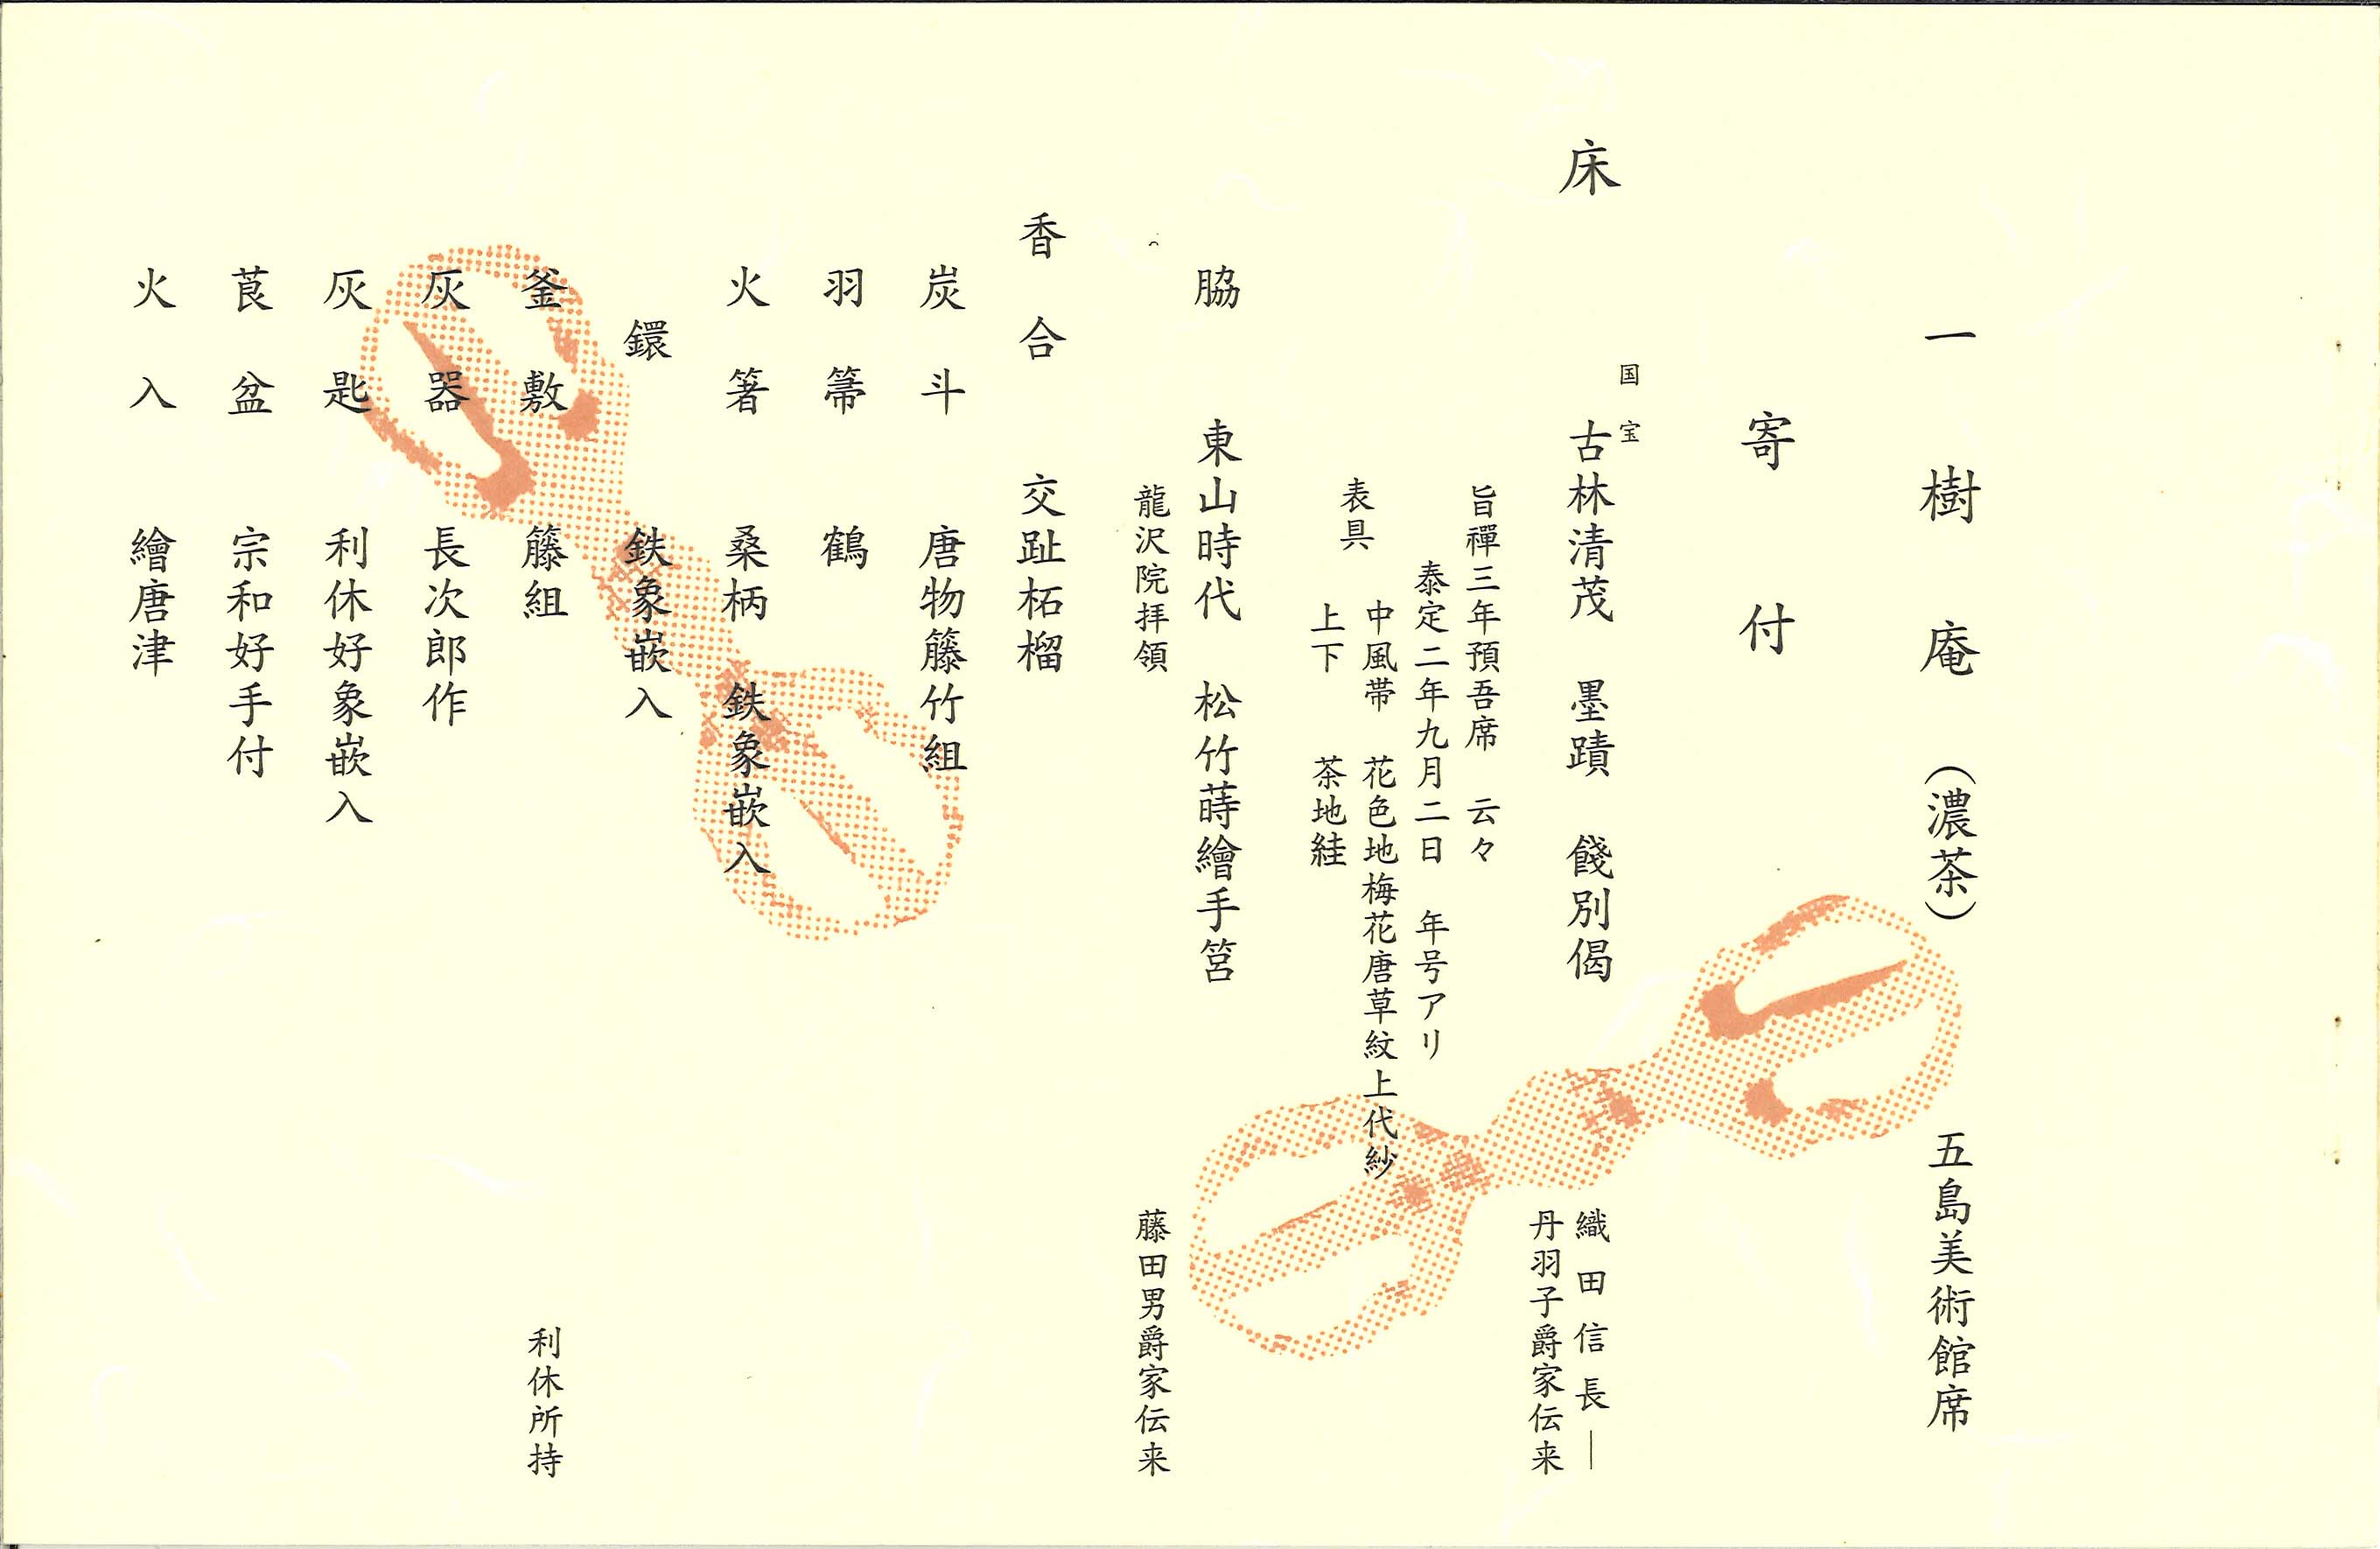 一樹庵（濃茶）　五島美術館席
寄付
床
国宝
古林清茂　墨蹟　餞別偈
織田信長―
丹羽子爵家伝来
旨禪三年預吾席　云々
泰定二年九月二日　年号アリ
表具
中風帯　花色地梅花唐草紋上代紗
上下　茶地絓
脇　東山時代　松竹蒔繪手筥
龍沢院拝領
藤田男爵家伝来
香合　交趾柘榴
炭斗　唐物籐竹組
羽箒　鶴
火箸　桑柄　鉄象嵌入
鐶　鉄象嵌入
釜敷　籐組　利休所持
灰器　長次郎作
灰匙　利休好象嵌入
莨盆　宗和好手付
火入　繪唐津